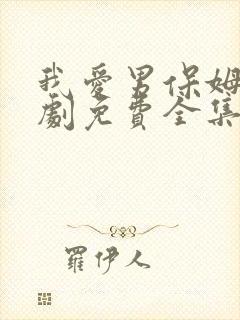 我愛男保姆
劇免費全集
羅伊人